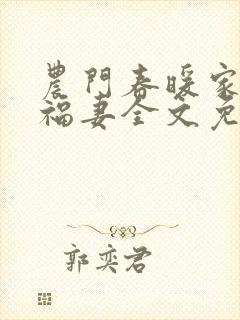 農門春暖家
福妻全文免
郭奕君